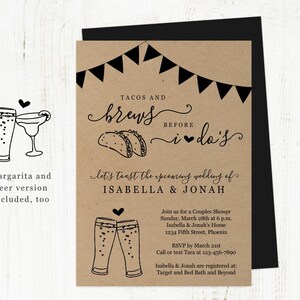 TACOS AND
brews
BEFORE
i do's
let's toast the upcoming wedding of
ISABELLA & JONAH
Join us for a Couples Shower
Sunday, March 28th at 6 p.m.
Isabella & Jonah's Home
1234 Fifth Street, Phoenix
RSVP by March 21st
Call or text Tara at 123-456-7890
Isabella & Jonah are registered at:
Target and Bed Bath and Beyond
argarita and
eer version
cluded, too